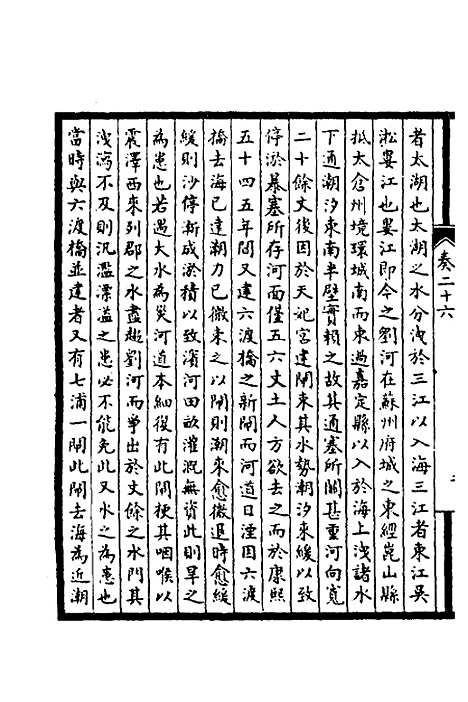 者太湖也太湖之水分洩於三江以入海三江者東江吳
淞婁江也婁江即今之劉河在蘇州府城之東經崑山縣
抵太倉州境環城南而東過嘉定縣以入於海上洩諸水
下通潮汐東南半壁實賴之故其通塞所關甚重河向寬
二十餘丈後因於天妃宮建閘束其水勢潮汐來緩以致
停淤暴塞所存河面僅五六丈土人方欲去之而於康熙
五十四五年間又建六渡橋之新閘而河道日湮因六渡
橋去海已遠潮力已微束之以閘則潮來愈微退時愈緩
緩則沙停漸成淤積以致濱河田畝灌溉無資此則旱之
為患也若遇大水為災河道本細復有此閘梗其咽喉以
震澤西來列郡之水盡趨劉河而爭出於丈餘之水門其
洩瀉不及則汎濫漂溢之患必不能免此又水之為患也
當時與六渡橋並建者又有七浦一閘此閘去海為近潮
奏二十六